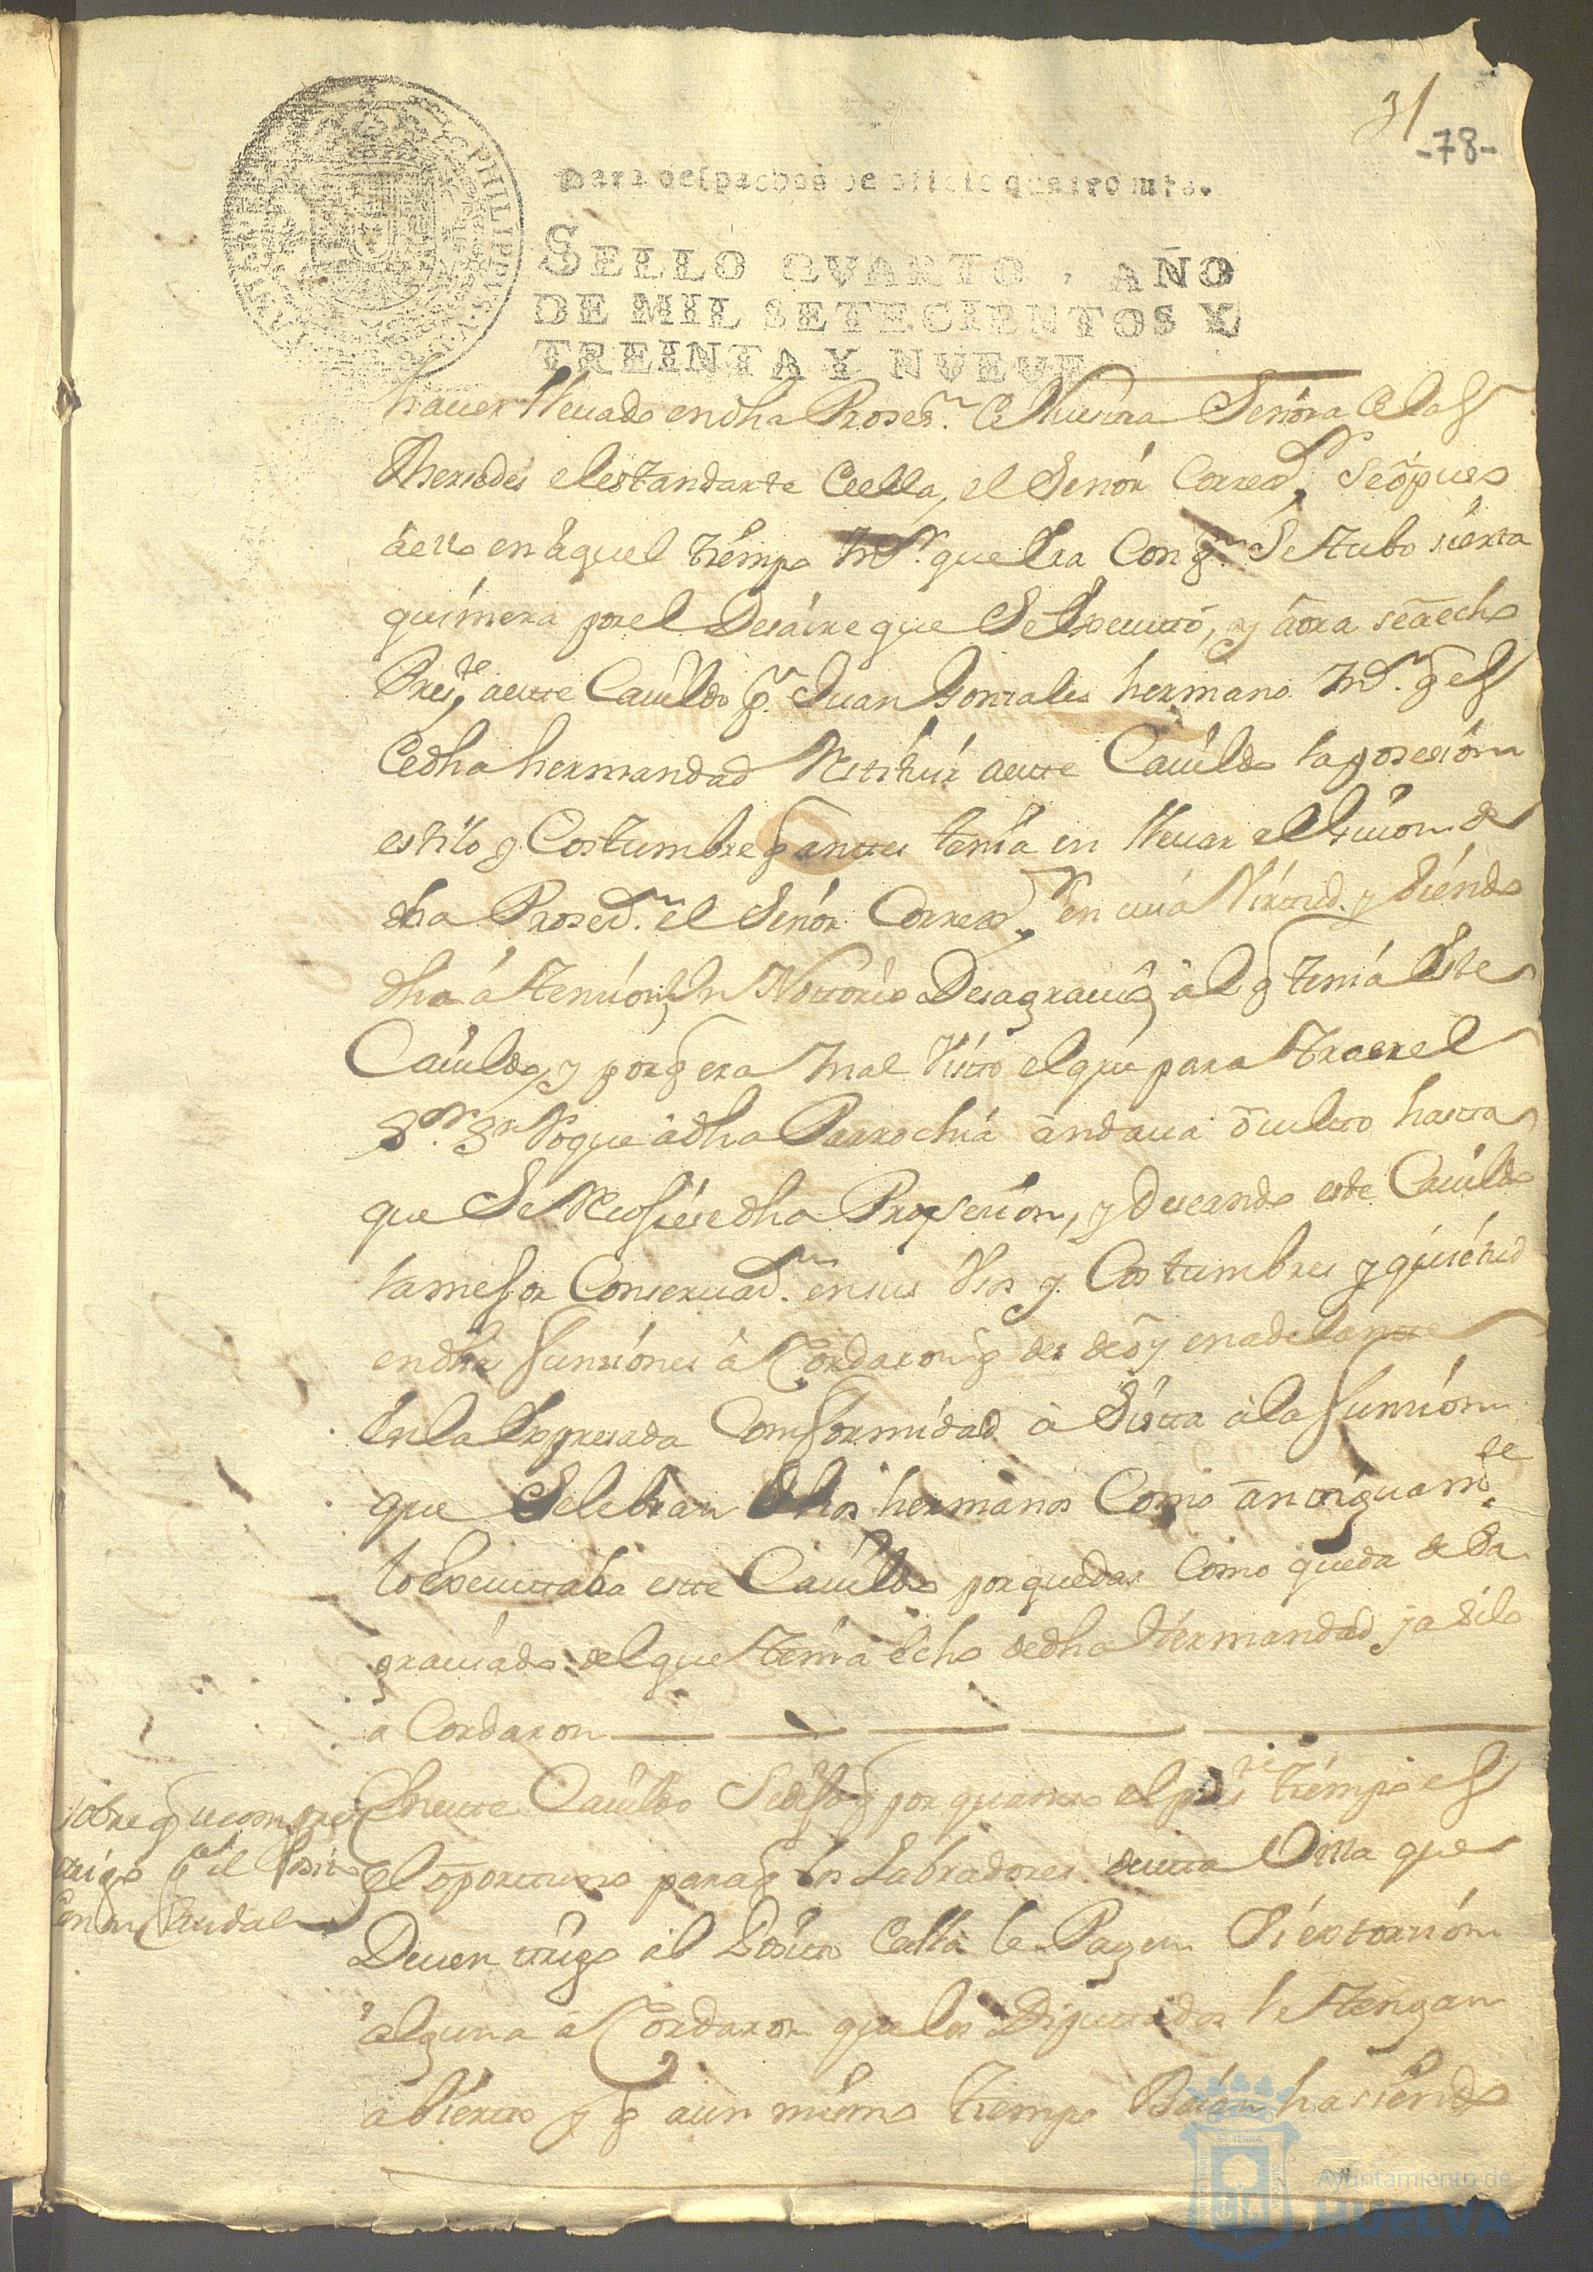 31
-78-
Para despachos de oficio quatro mrs.
SELLO QVARTO, AÑO
DE MIL SETECIENTOS Y
TREINTA Y NUEVE
PHILIPPUS V D
hauer lleuado en dha Proses.n de Nuestra Señora de las
Mersedes el estandarte de ella, el Señor Corred.r
en aquel tiempo que Se tubo sierta
quimera por el Desaire que Se executó, y aora se a echo
Pres.te a este Cauildo p.r Juan Gonzales hermano m.r q es
de dha hermandad Restituir a este Cauildo la posesion
estilo y Costumbre q antes tenia en lleuar el Guion de
dha Prosed.n el Señor Corred.r en cuia Virtud y siendo
dha atension Notorio Desagrauio al q tenia este
Cauildo, y por q era mal Visto el q para traer el
S.or S.n Roque a dha Parrochia andaua oculto hasta
que Se Recojiese dha Prosesion, y Deseando este Cauildo
la mejor Conseruad.n en sus Vsos y Costumbres y quietud
en dhas funsiones acordaron q desde oy en adelante
en la expresada Comformidad asista a la funsion
que Selebran dhos hermanos Como antiguam.te
lo executtaba este Cauildo por quedar Como queda desa
grauiado del que tenia echo de dha Hermandad y asi lo
acordaron
En este Cauildo Se dijo q por quanto el pres.te tiempo es
el oportuno para q los Labradores de esta Villa que
Deuen trigo al Posito de ella le Paguen Si estorsion
alguna acordaron que los Diputados le tengan
abierto y q a un mismo tiempo Baian hasiendo
sobre q se compre
trigo p.a el Posito
con su Caudal
Ayuntamiento de
HUELVA